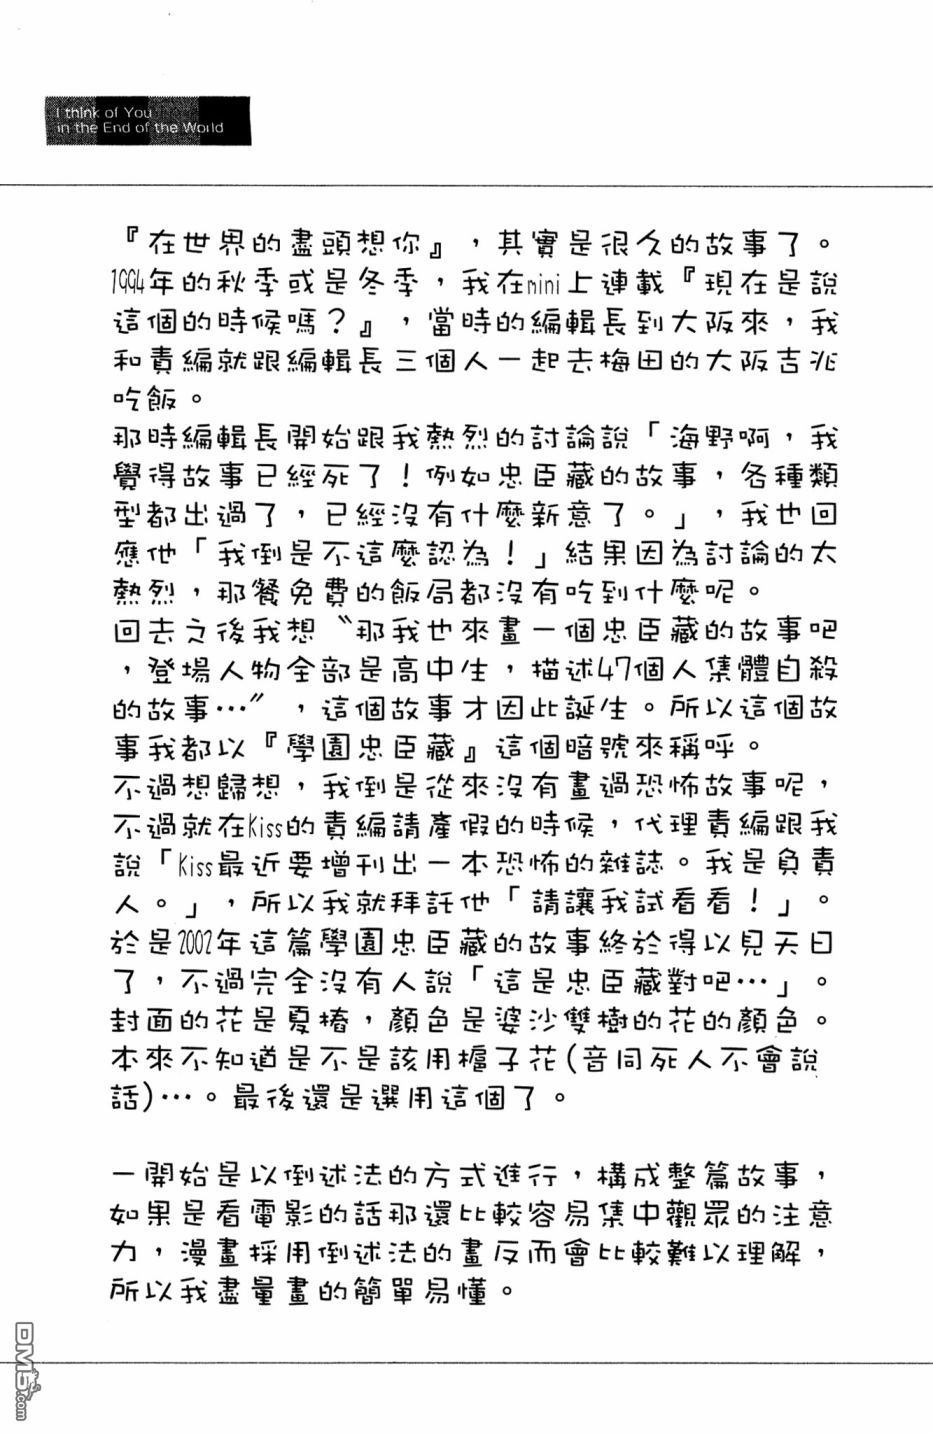 I think of You
in the End of the World
『在世界的盡頭想你』，其實是很久的故事了。
1994年的秋季或是冬季，我在nini上連載『現在是說
這個的時候嗎？』，當時的編輯長到大阪來，我
和責編就跟編輯長三個人一起去梅田的大阪吉兆
吃飯。
那時編輯長開始跟我熱烈的討論說「海野啊，我
覺得故事已經死了！例如忠臣藏的故事，各種類
型都出過了，已經沒有什麼新意了。」，我也回
應他「我倒是不這麼認為！」結果因為討論的太
熱烈，那餐免費的飯局都沒有吃到什麼呢。
回去之後我想〝那我也來畫一個忠臣藏的故事吧
，登場人物全部是高中生，描述47個人集體自殺
的故事…〞，這個故事才因此誕生。所以這個故
事我都以『學園忠臣藏』這個暗號來稱呼。
不過想歸想，我倒是從來沒有畫過恐怖故事呢，
不過就在Kiss的責編請產假的時候，代理責編跟我
說「Kiss最近要增刊出一本恐怖的雜誌。我是負責
人。」，所以我就拜託他「請讓我試看看！」。
於是2002年這篇學園忠臣藏的故事終於得以見天日
了，不過完全沒有人說「這是忠臣藏對吧…」。
封面的花是夏椿，顏色是婆沙雙樹的花的顏色。
本來不知道是不是該用梔子花(音同死人不會說
話)…。最後還是選用這個了。
一開始是以倒述法的方式進行，構成整篇故事，
如果是看電影的話那還比較容易集中觀眾的注意
力，漫畫採用倒述法的畫反而會比較難以理解，
所以我盡量畫的簡單易懂。
DM5.com